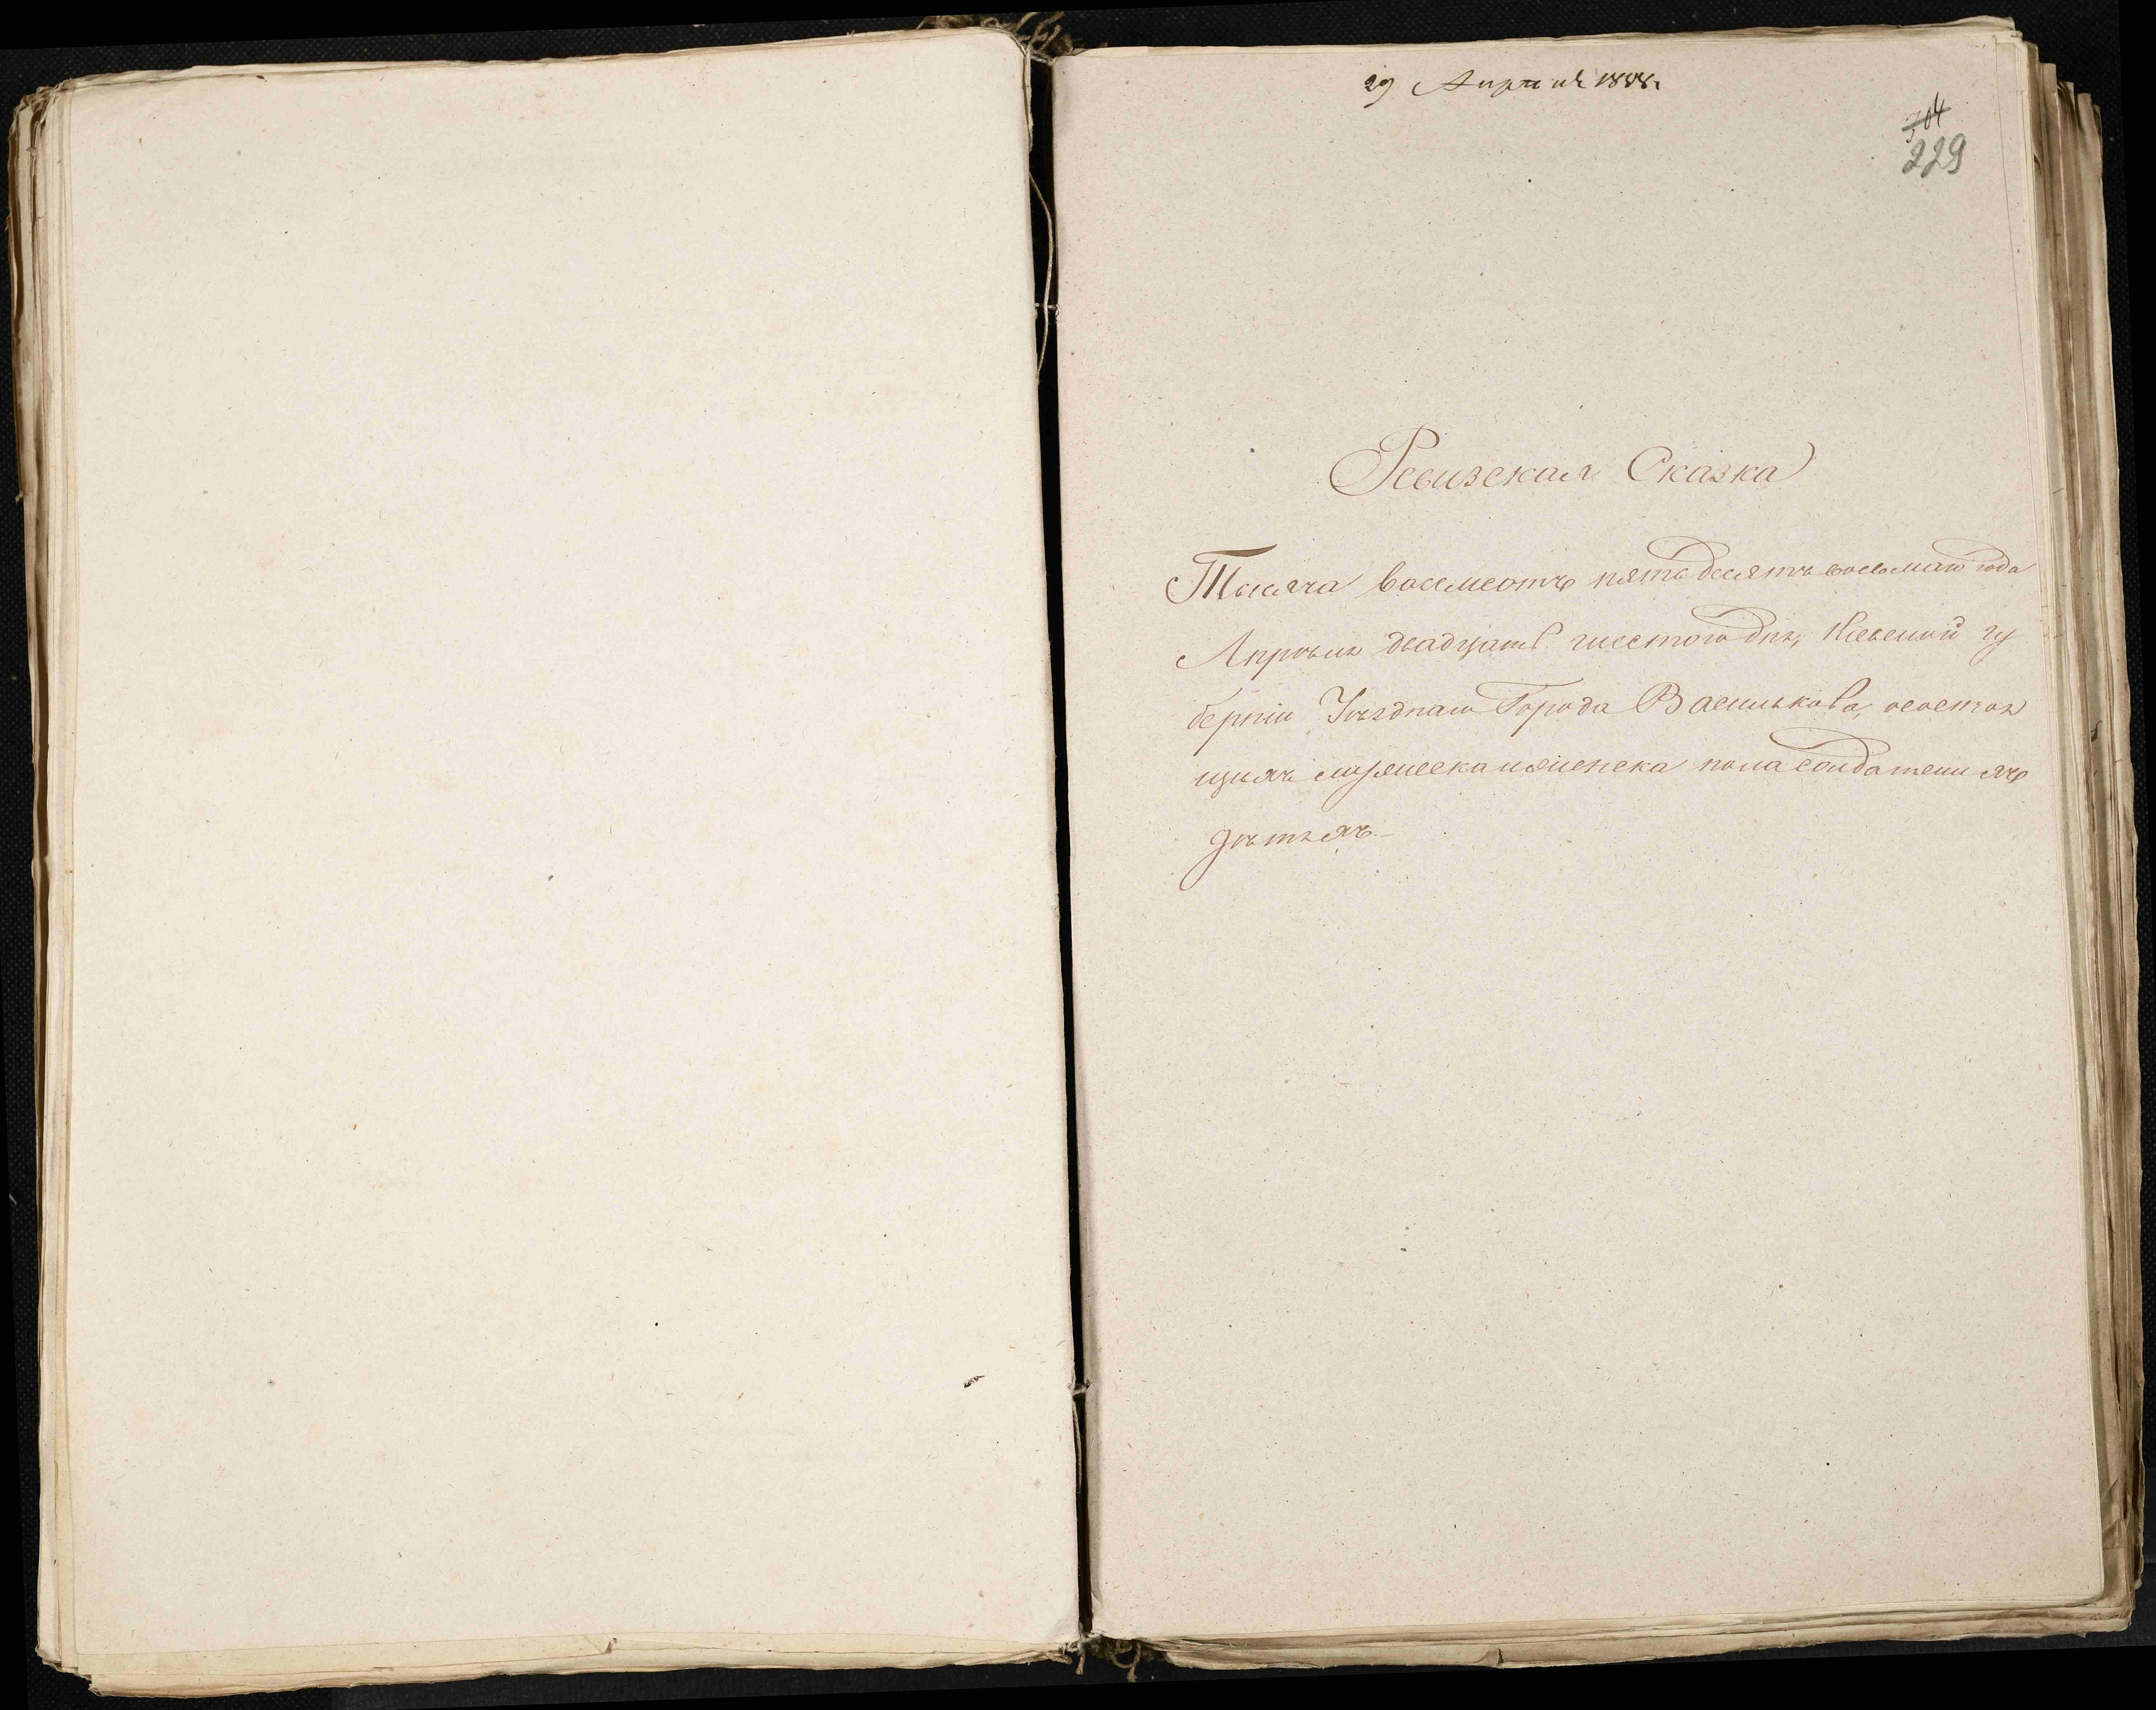 29 Апрѣля 1858.
704
229
Ревизская Сказка
Тысяча восемсотъ пятьдесятъ восьмаго года
Апрѣля двадцать шестого дня, Кіевской гу
берніи Уѣзднаго Города Василькова, осостоя
щихъ мужеска иженска пола солдатскихъ
дѣтяхъ